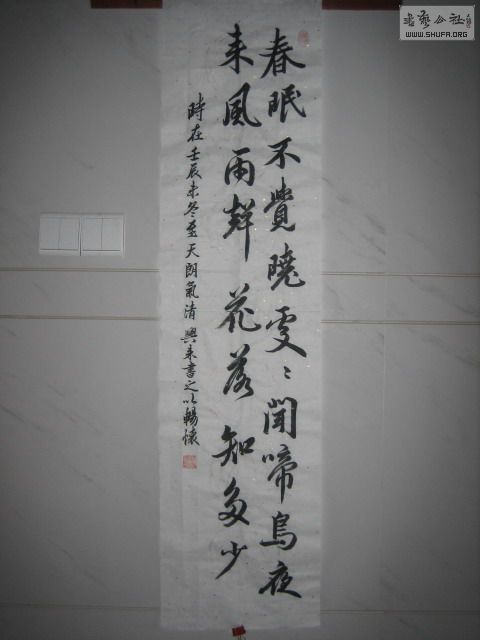 春眠不覺曉處〻聞啼鳥夜
来風雨聲花落知多少
時在壬辰末冬至天朗氣清興来書之以暢懷
書藝公社
WWW.SHUFA.ORG